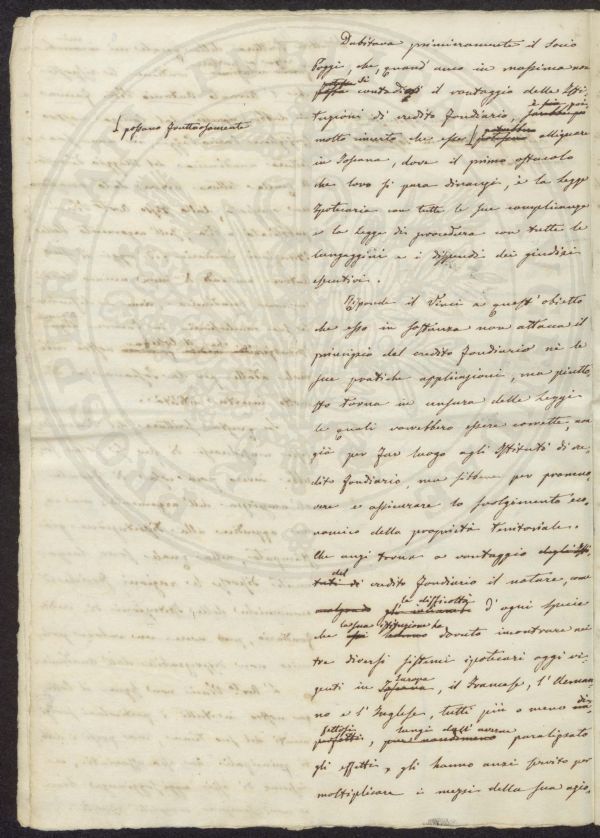 Dubitava primieramente il Socio
Poggi, che, quand' anco in massima non
potesse si
possa contradirsi il vantaggio delle Isti-
tuzioni di credito fondiario, sarebbe poi
è poi
molto incerto che esse potessero allignare
potrebbero
possano fruttuosamente
in Toscana, dove il primo ostacolo
che loro si para dinanzi, è la Legge
Ipotecaria con tutte le sue complicanze
e la legge di procedura con tutte le
lungaggini e i dispendi dei giudizi
esecutivi.
Risponde il Vinci a quest' obietto
che esso in sostanza non attacca il
principio del credito fondiario nè le
sue pratiche applicazioni, ma piutto-
sto torna in censura delle Leggi
le quali vorrebbero essere corrette, non
già per far luogo agli Istituti di cre-
dito fondiario, ma sibbene per promuo-
vere e assicurare lo svolgimento eco-
nomico della proprietà territoriale.
Che anzi torna a vantaggio degli Isti-
del
tuti di credito fondiario il notare, come
le difficoltà
malgrado gli inciampi d' ogni specie
la sua istituzione ha
che essi hanno dovuto incontrare nei
tre diversi sistemi ipotecari oggi vi-
Europa
genti in Toscana, il Francese, l' Aleman-
no e l' Inglese, tutti più o meno im-
di-
fettosi lungi dall' averne
perfetti, pure nondimeno paralizzato
gli effetti, gli hanno anzi servito per
moltiplicare i mezzi della sua azio-